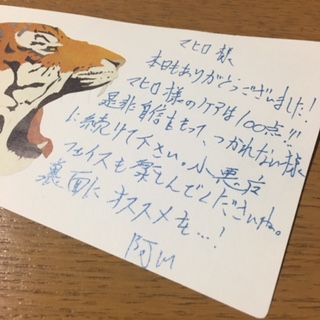 マヒロ様
本日もありがとうございました！
マヒロ様のケアは100点!!
是非自信をもって、つかれない様
に続けて下さい。小悪魔
フェイスも楽しんでくださいね。
裏面にオススメを…！
阿川